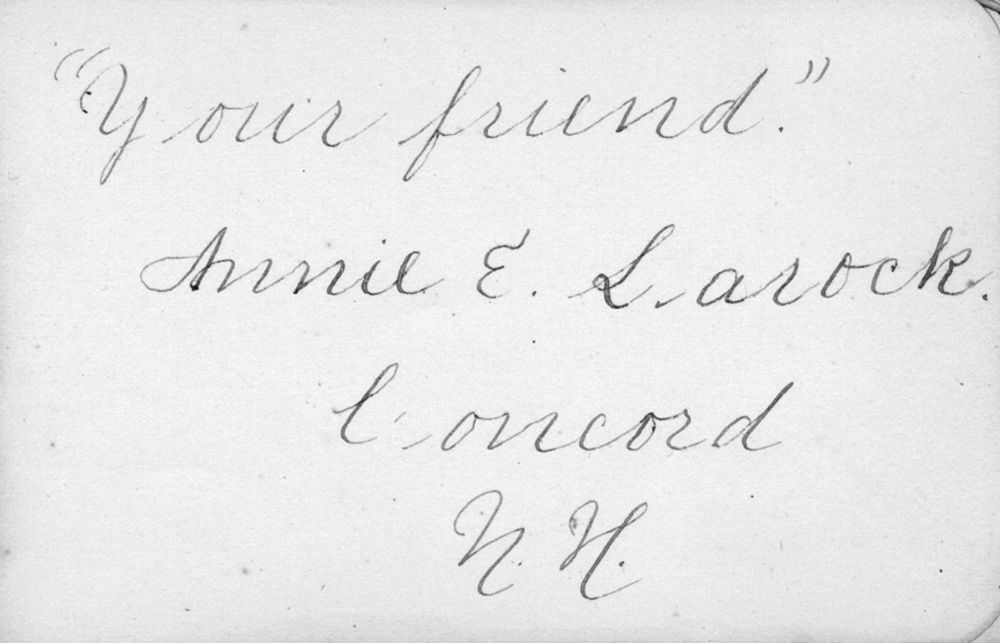 "Your friend."
Annie E. Larock.
Concord
N. H.